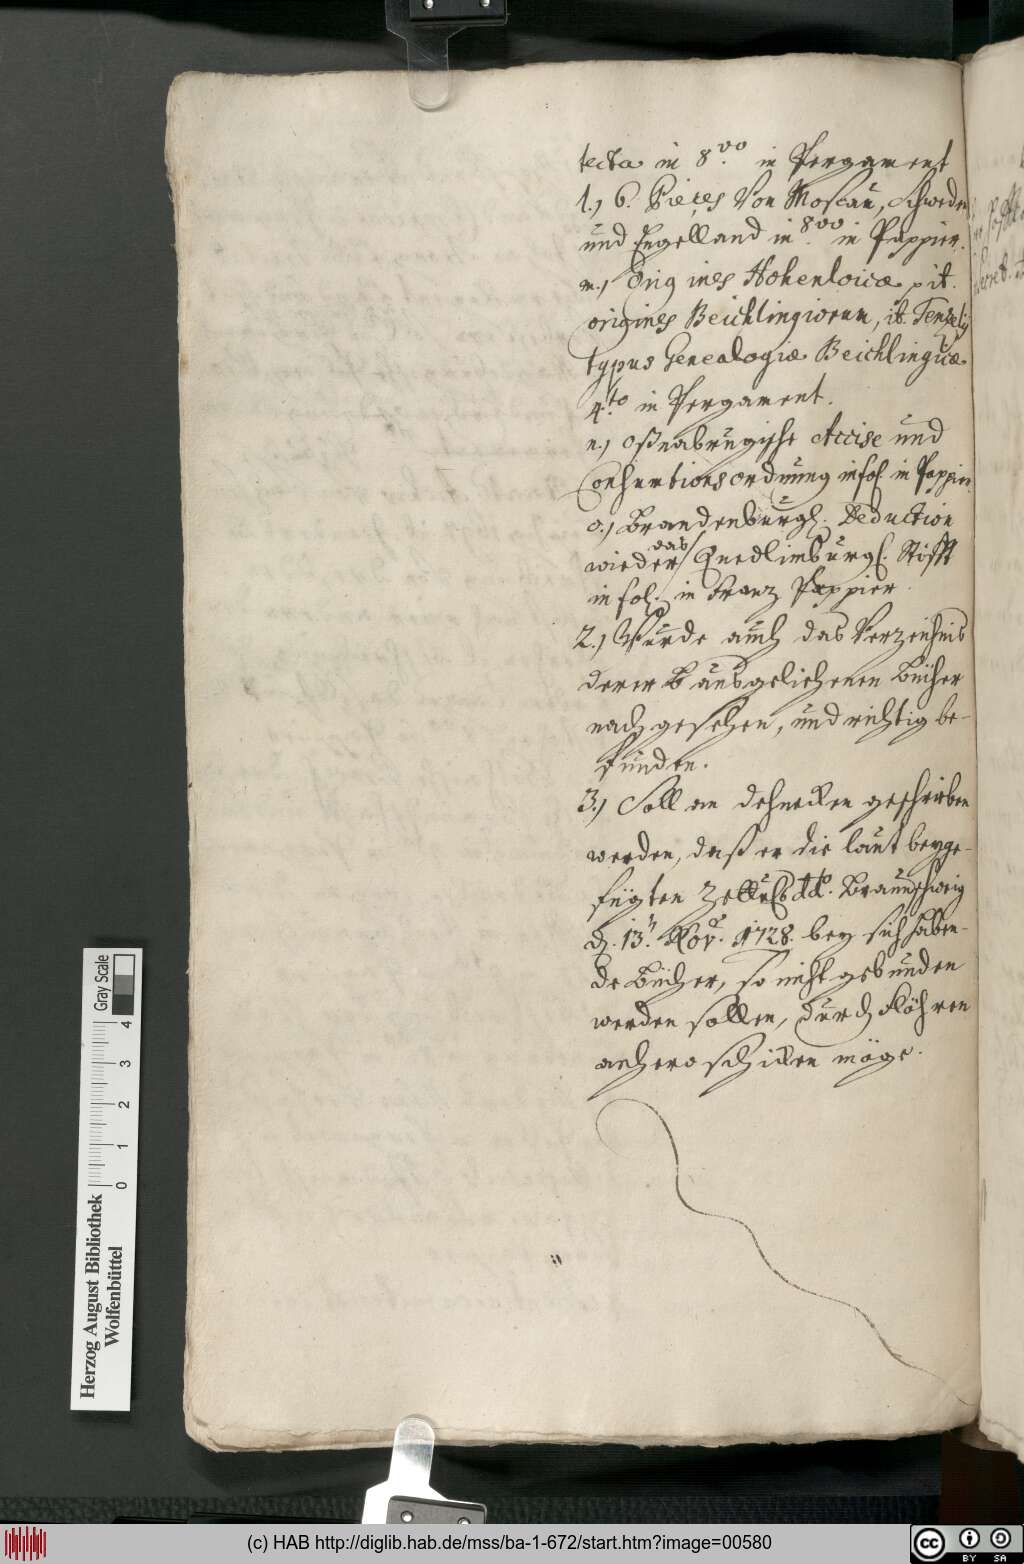 tecta in 8.vo in Pergament
l.) 6. Pieçes von Moscau, Schweden
und Engelland in 8.vo in Pappier.
m.) Origines Hohenloicæ, it.
origines Beichlingiorum, it. Tenzely
typus Genealogiæ Beichlingicæ
4.to in Pergament.
n.) Oßnabrugische Accise und
Consumtionsordnung in fol. in Pappier.
o.) Brandenburgs. Deduction
wieder das Quedlimburgs. Stifft
in fol. in Franz Pappier.
2.) Wurde auch das Verzeichnis
derer ausgeliehenen Bücher
nachgesehen, und richtig be-
funden.
3.) Soll an Dehnecken geschrieben
werden, daß er die laut beyge-
fügten Zettuls dd. Braunschweig
d. 13. Nov. 1728. bey sich haben-
de Bücher, so nicht gebunden
werden sollen, durch Röhren
anhero schicken möge.
Herzog August Bibliothek
Wolfenbüttel
0 1 2 3 4
Gray Scale
(c) HAB http://diglib.hab.de/mss/ba-1-672/start.htm?image=00580
cc BY SA